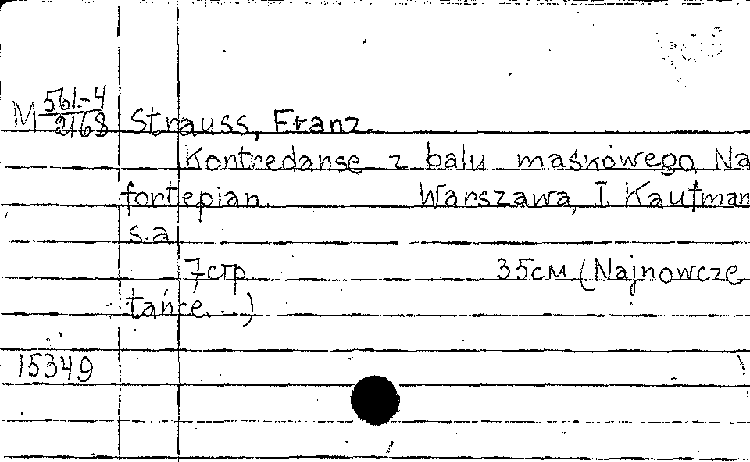 M 561-4/2168 Strauss, Franz.
Kontredanse z balu maskowego. Na
fortepian. Warszawa, I. Kaufman
s.a.
7 стр. 35 см. (Najnowcze
tańce...)
15349